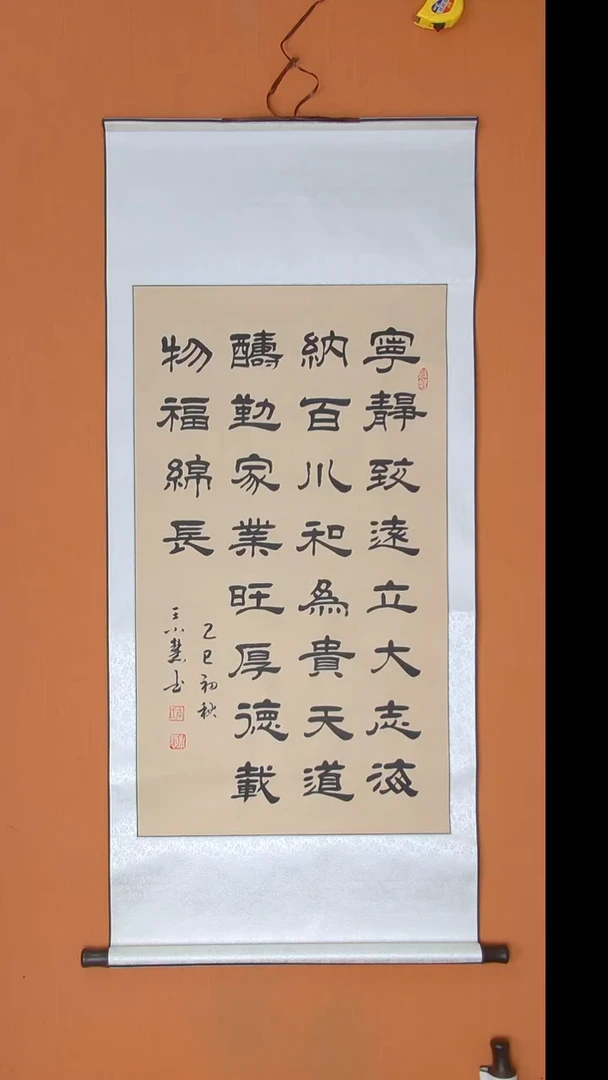 寧靜致遠立大志海
納百川和為貴天道
醻勤家業旺厚德載
物福綿長
乙巳初秋
王小慧书